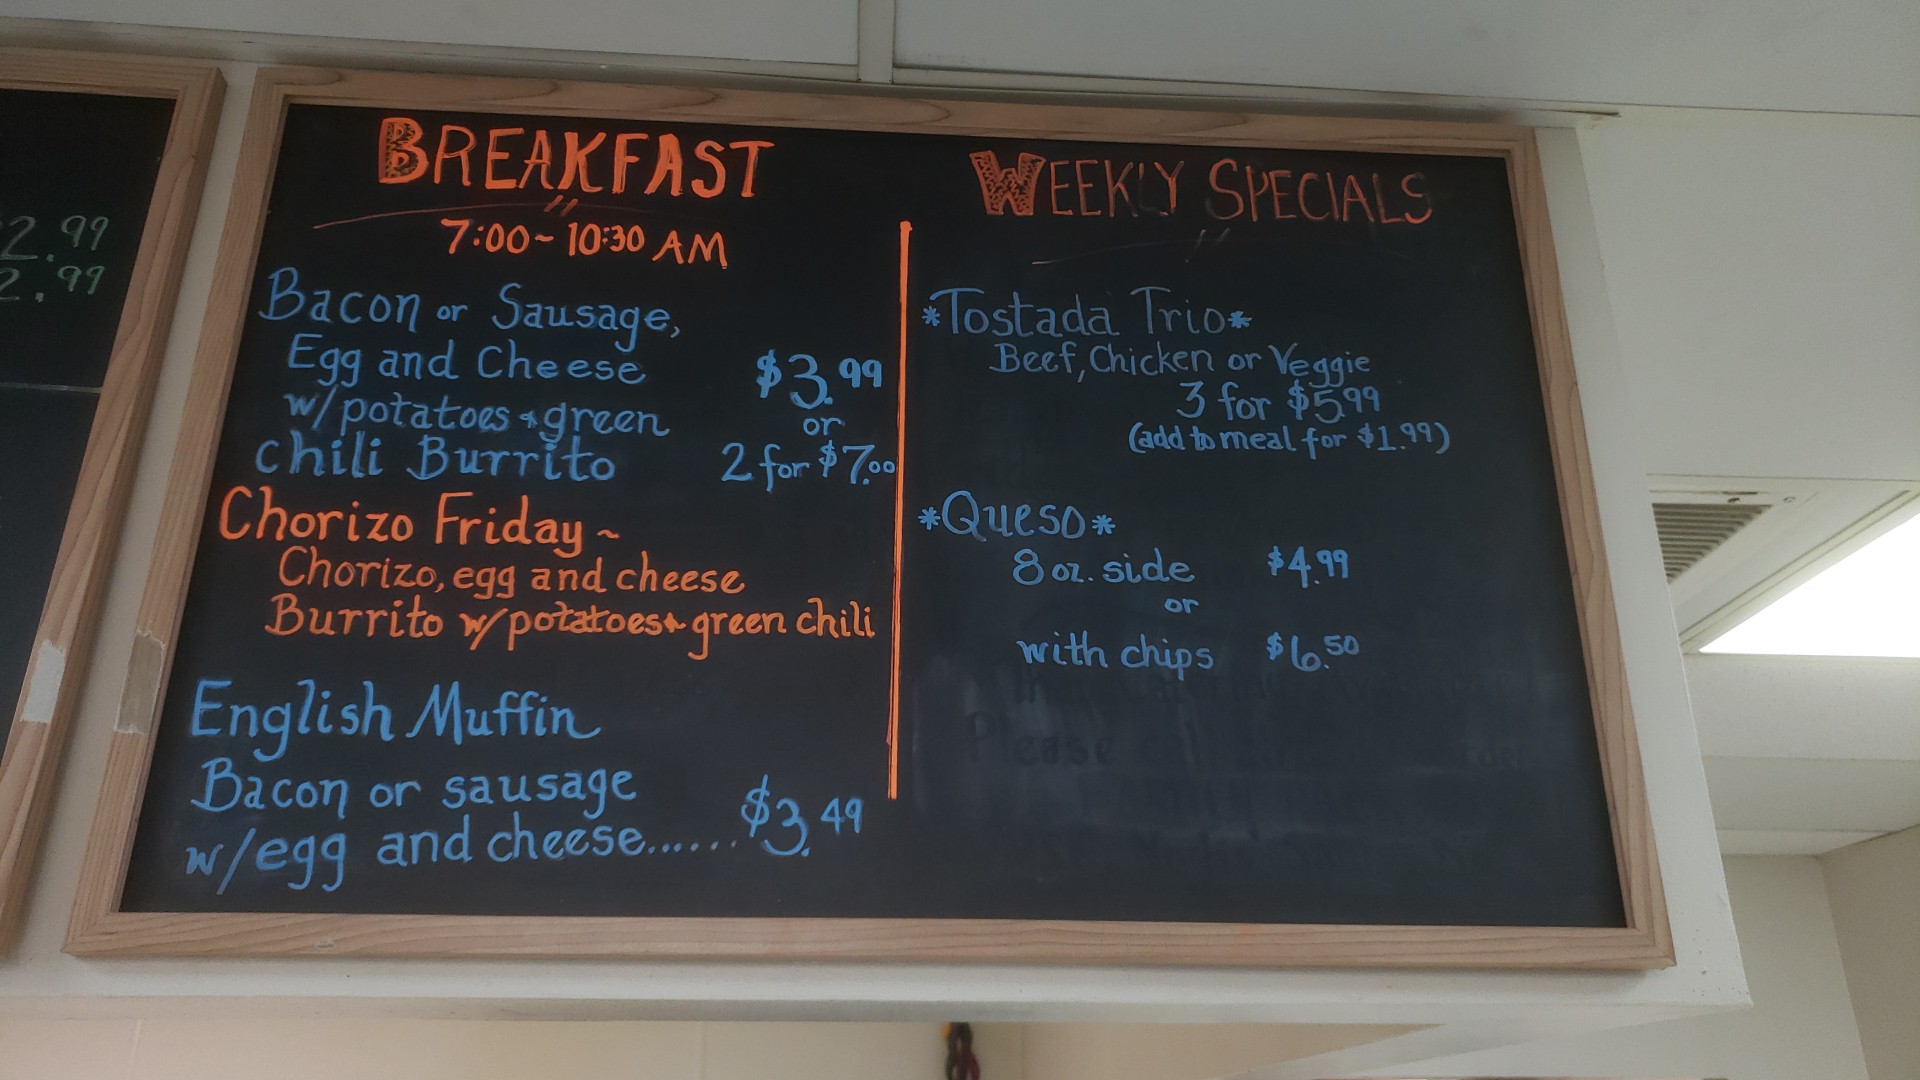 2.99
2.99
BREAKFAST
7:00~10:30 AM
Bacon or Sausage,
Egg and Cheese
w/potatoes + green
chili Burrito
$3.99
or
2 for $7.00
Chorizo Friday ~
Chorizo, egg and cheese
Burrito w/potatoes + green chili
English Muffin
Bacon or sausage
w/egg and cheese...... $3.49
WEEKLY SPECIALS
*Tostada Trio*
Beef, Chicken or Veggie
3 for $5.99
(add to meal for $1.99)
*Queso*
8 oz. side $4.99
or
with chips $6.50
Please